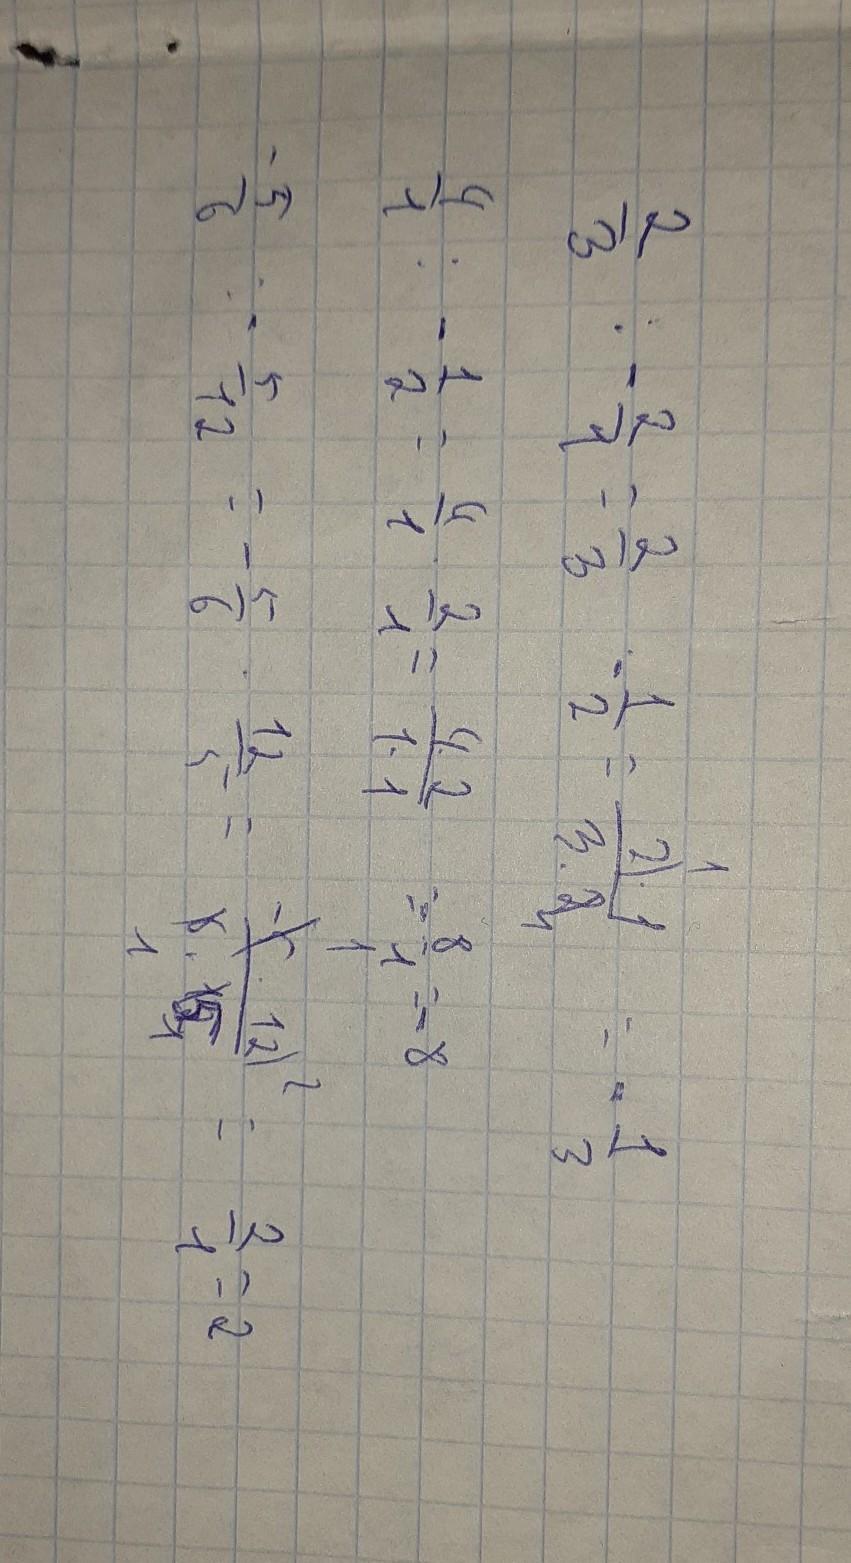 2/3 : -2/1 = 2/3 · -1/2 = 2·1/3·2 = -1/3
4/1 : -1/2 = 4/1 · 2/1 = 4·2/1·1 = -8/1 = -8
-5/6 : -5/12 = -5/6 · 12/5 = -5·12/6·5 = 2/1 = 2